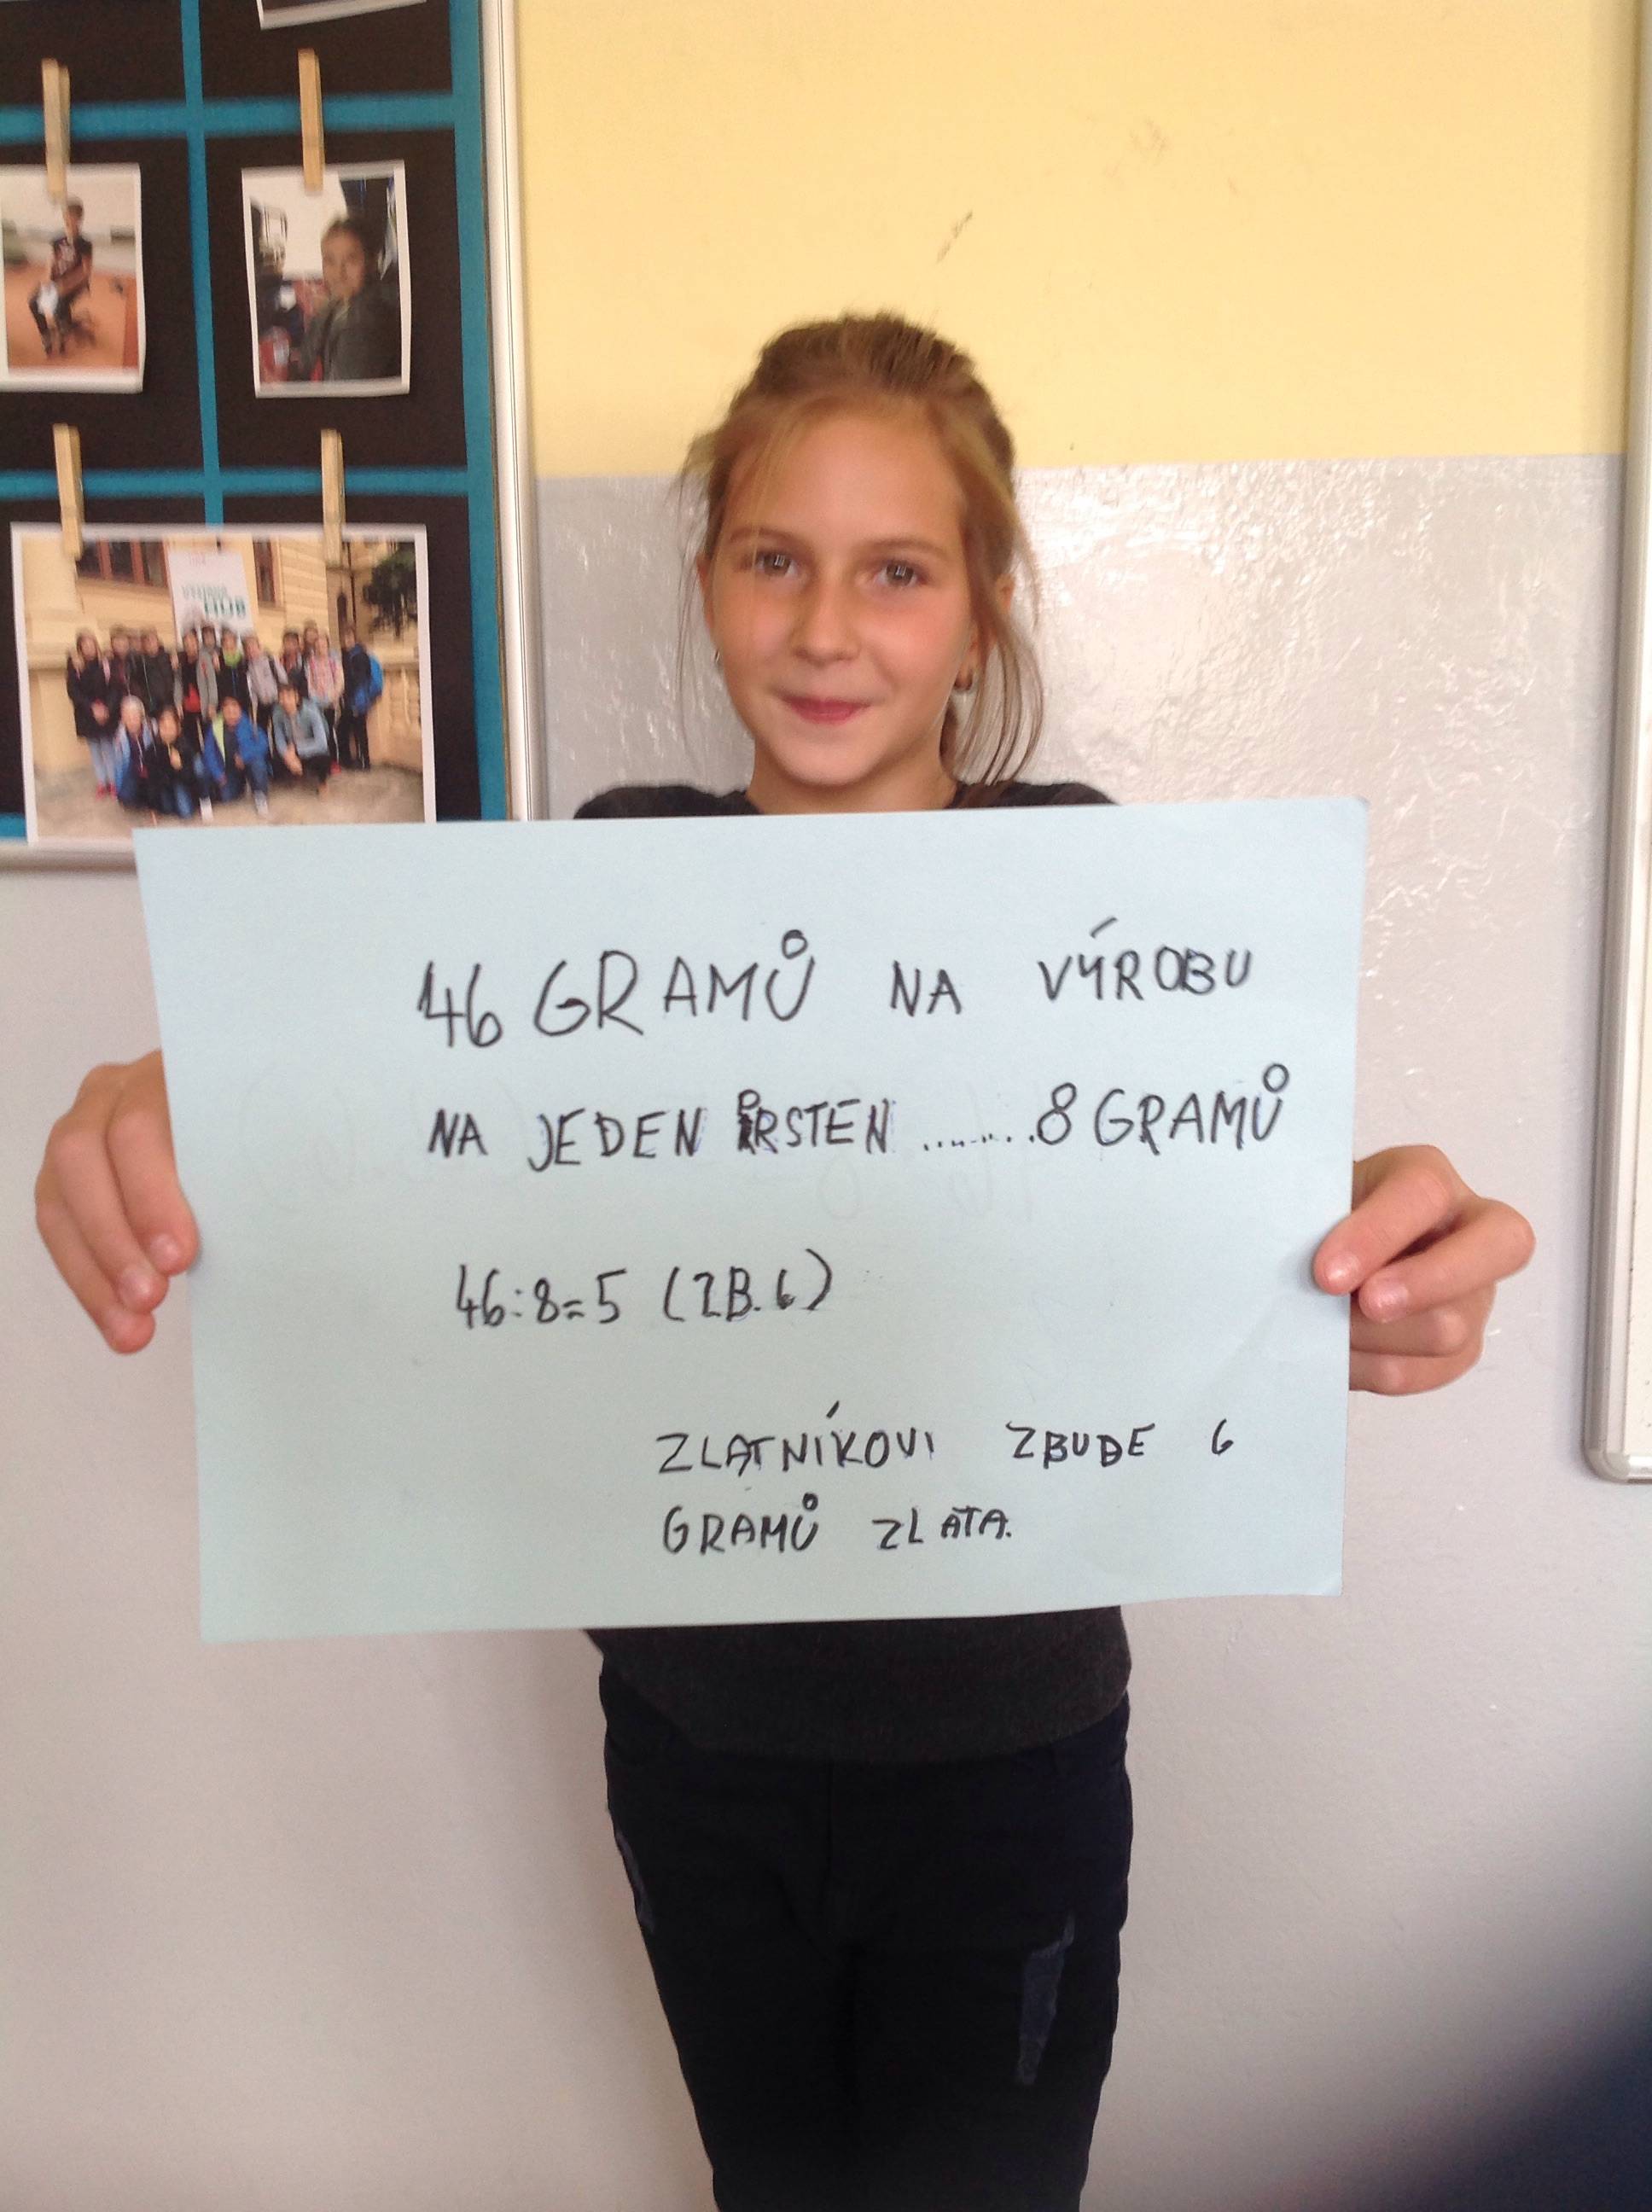 HUB
46 GRAMŮ NA VÝROBU
NA JEDEN PRSTEN ........8 GRAMŮ
46:8=5 (ZB.6)
ZLATNÍKOVI ZBUDE 6
GRAMŮ ZLATA.